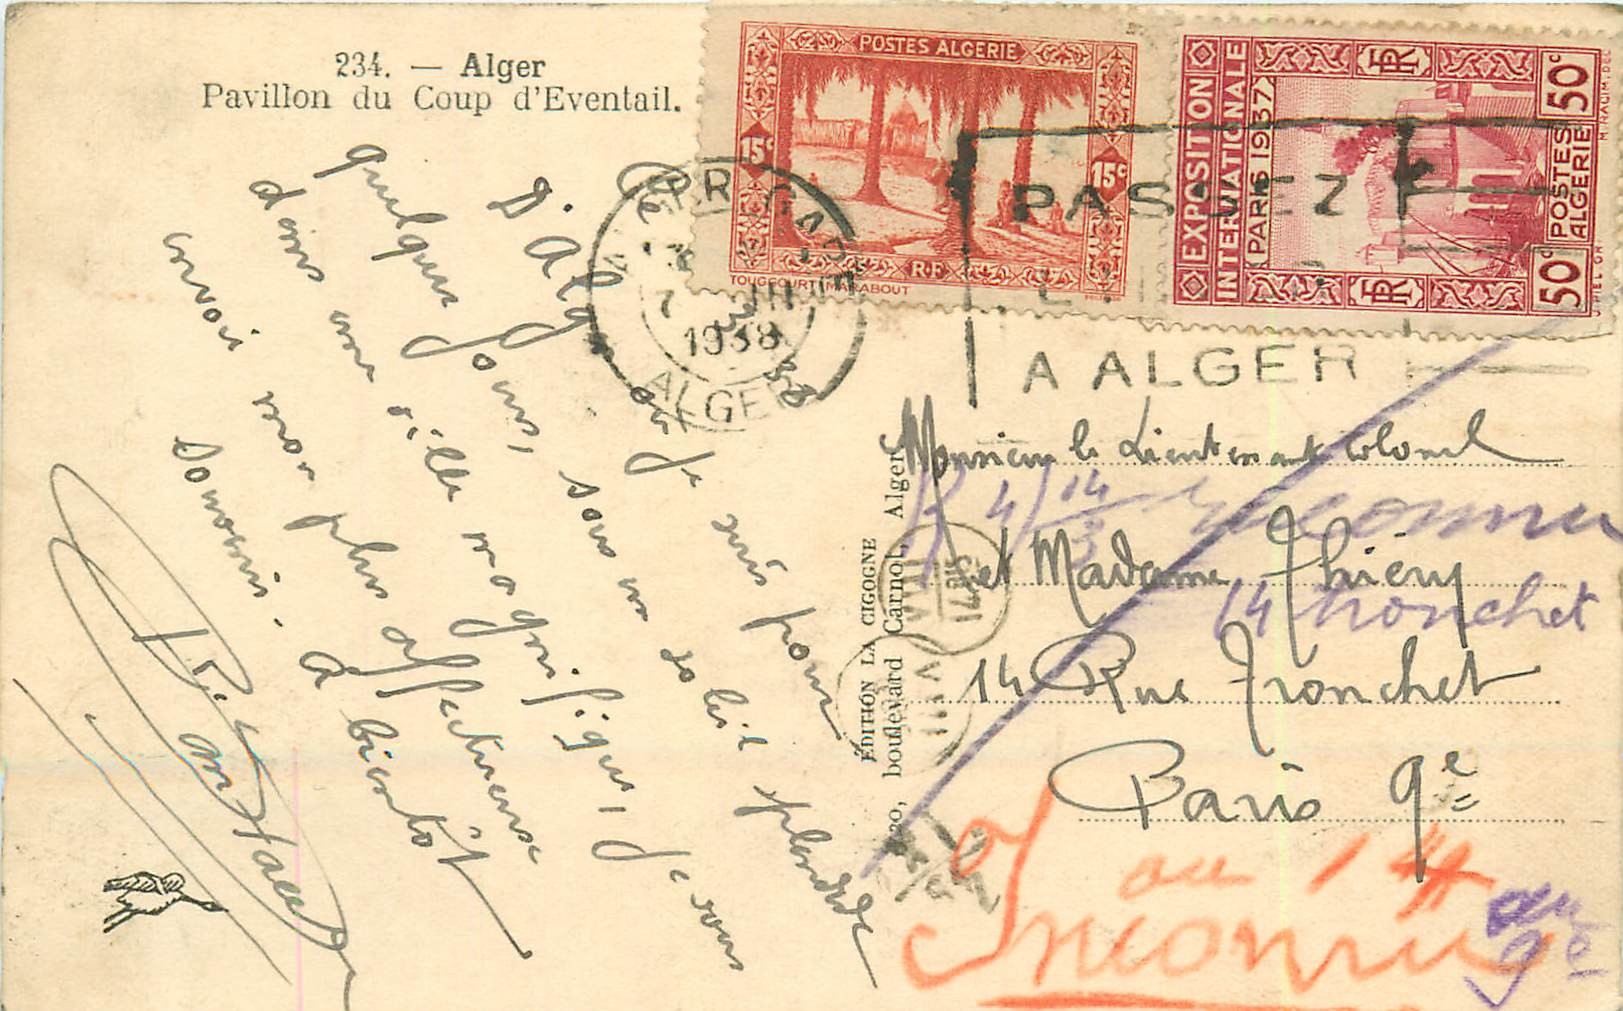 234. — Alger
Pavillon du Coup d'Eventail.
POSTES ALGERIE
15c
15c
RF
TOUGGOURT MARABOUT
EXPOSITION
INTERNATIONALE
PARIS 1937
RF
RF
50c
50c
POSTES
ALGERIE
ALGER GARE
7 III
1938
ALGER
PASSEZ
A ALGER
D'Alger où je suis pour
quelques jours, sous un soleil splendide
dans une ville magnifique, je vous
envoie mon plus affectueux
souvenir. A bientôt
ÉDITION LA CIGOGNE
20, boulevard Carnot, Alger
Monsieur le Lieutenant Colonel
et Madame Thiéry
14 Rue Tronchet
Paris 9e
14/3
Inconnu
14 Tronchet
au 14
Inconnu
au
9e